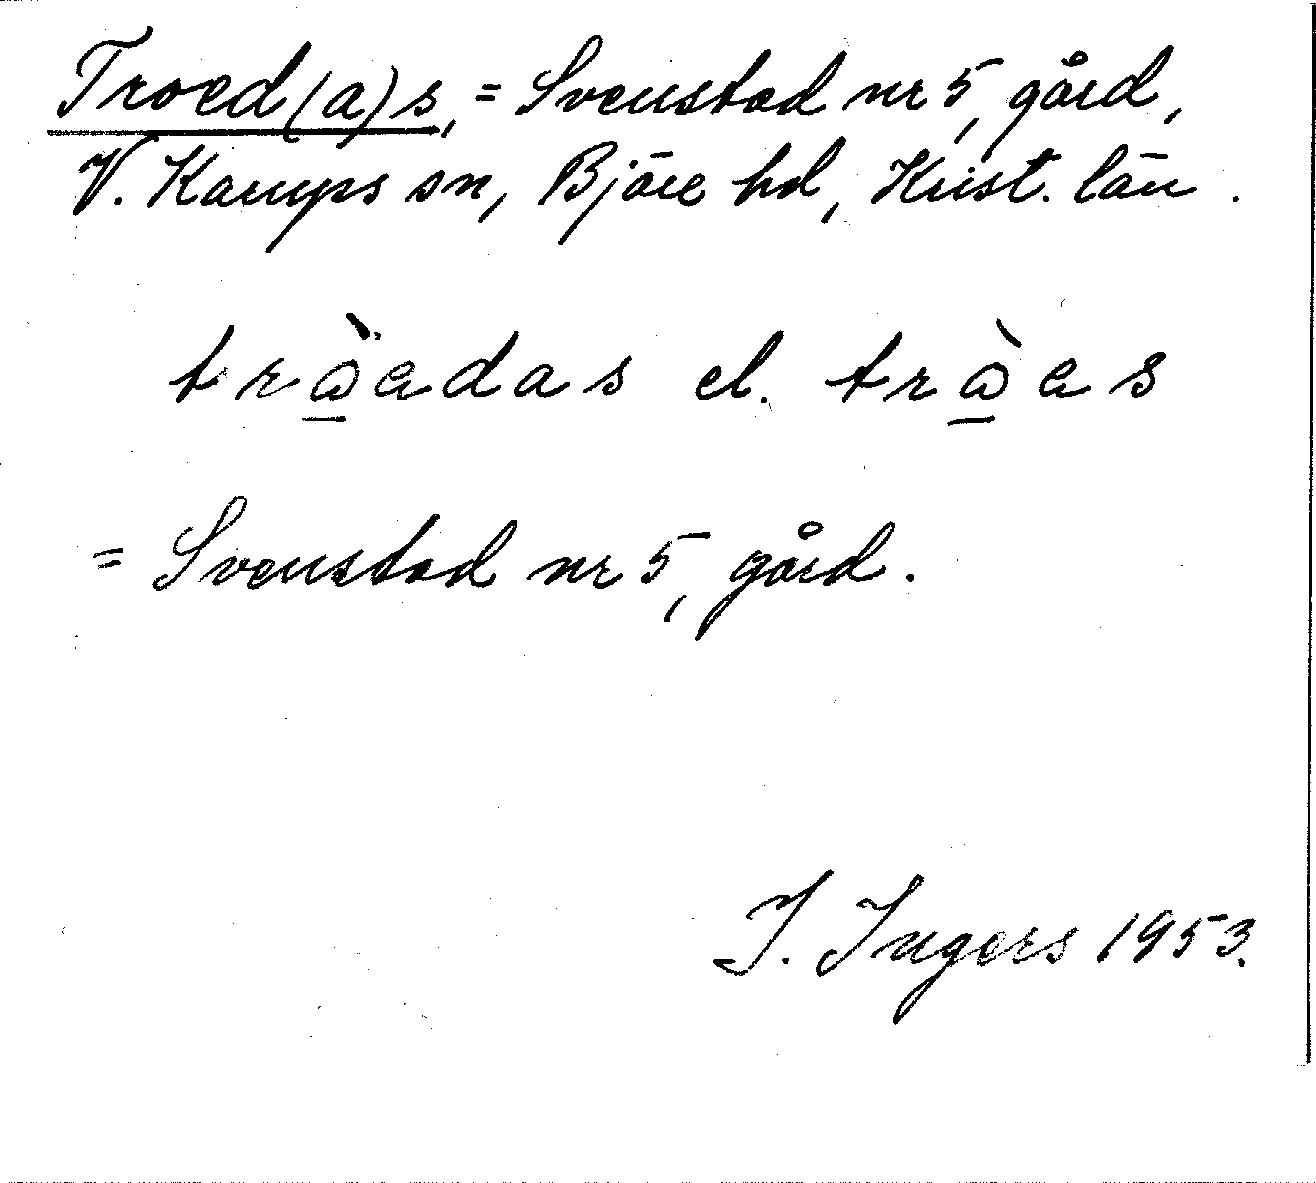 Troed(a)s, = Svenstad nr 5, gård,
V. Karups sn, Bjäre hd, Krist. län.
trὼ̱adas el. trὼ̱as
= Svenstad nr 5, gård.
I. Ingers 1953.